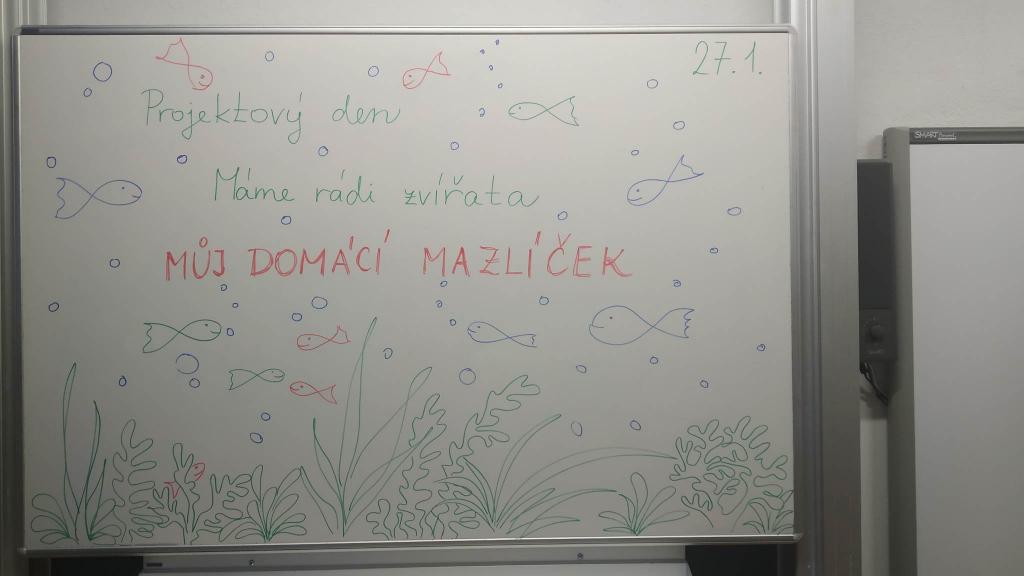 27.1.
Projektový den
Máme rádi zvířata
MŮJ DOMÁCÍ MAZLÍČEK
SMART